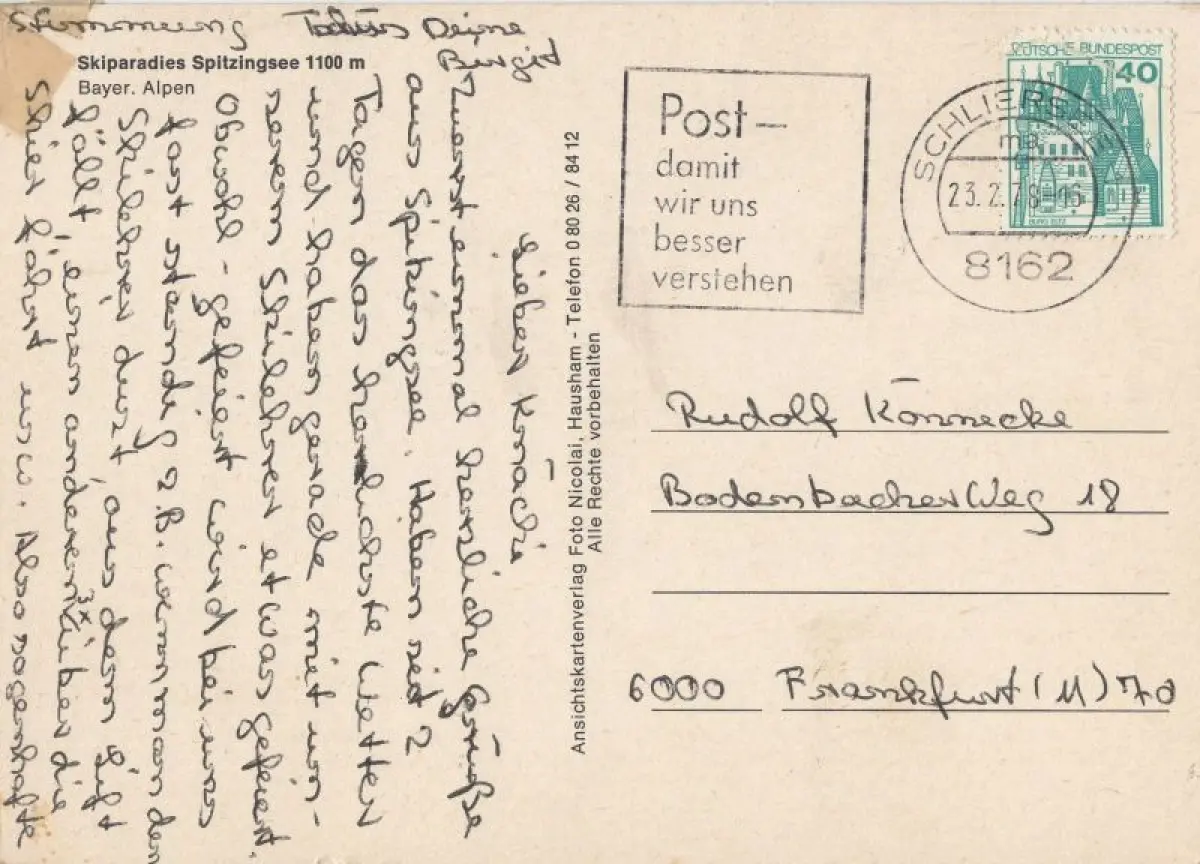 Skiparadies Spitzingsee 1100 m
Bayer. Alpen
Lieber Knacki
Zuerst einmal herzliche Grüße
aus Spitzingsee. Haben seit 2
Tagen das herrlichste Wetter
und haben gerade mit un-
serem Skilehrer etwas gefeiert.
Obwohl - gefeiert wird bei uns
fast ständig z.B. wenn man den
Skilehrer duzt, aus dem Lift
fällt, einen anderen 3x über die
Skier fährt usw. Also sagenhafte
Stimmung Tschüs Deine
Birgit
Ansichtskartenverlag Foto Nicolai, Hausham - Telefon 0 80 26 / 84 12
Alle Rechte vorbehalten
Post -
damit
wir uns
besser
verstehen
DEUTSCHE BUNDESPOST
40
BURG ELTZ
SCHLIERSEE
mb
23.2.78-16
8162
Rudolf Könnecke
Bodenbacher Weg 18
6000 Frankfurt (M) 70